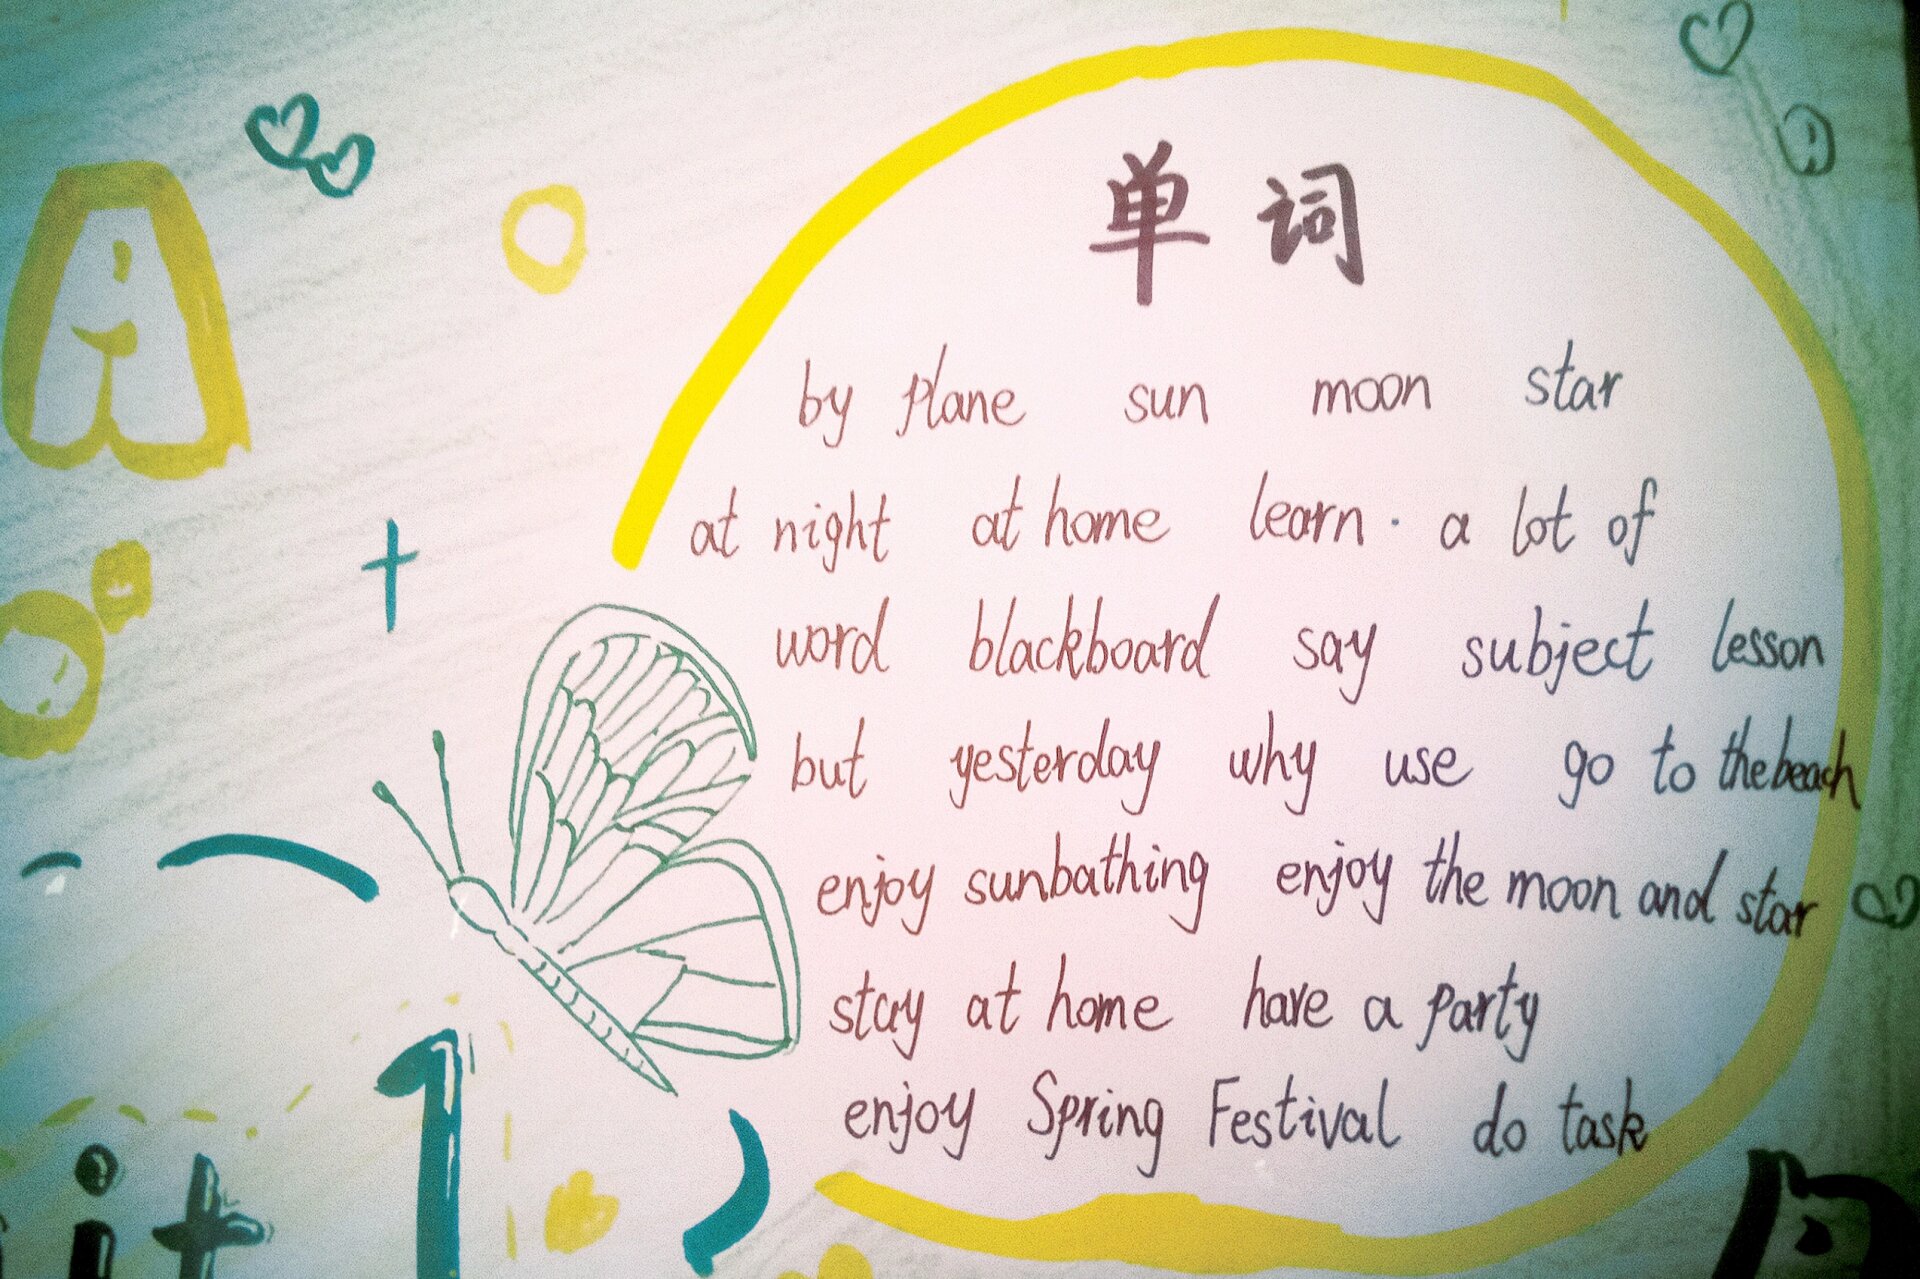 单词
by plane sun moon star
at night at home learn · a lot of
word blackboard say subject lesson
but yesterday why use go to the beach
enjoy sunbathing enjoy the moon and star
stay at home have a party
enjoy Spring Festival do task
A
it 1